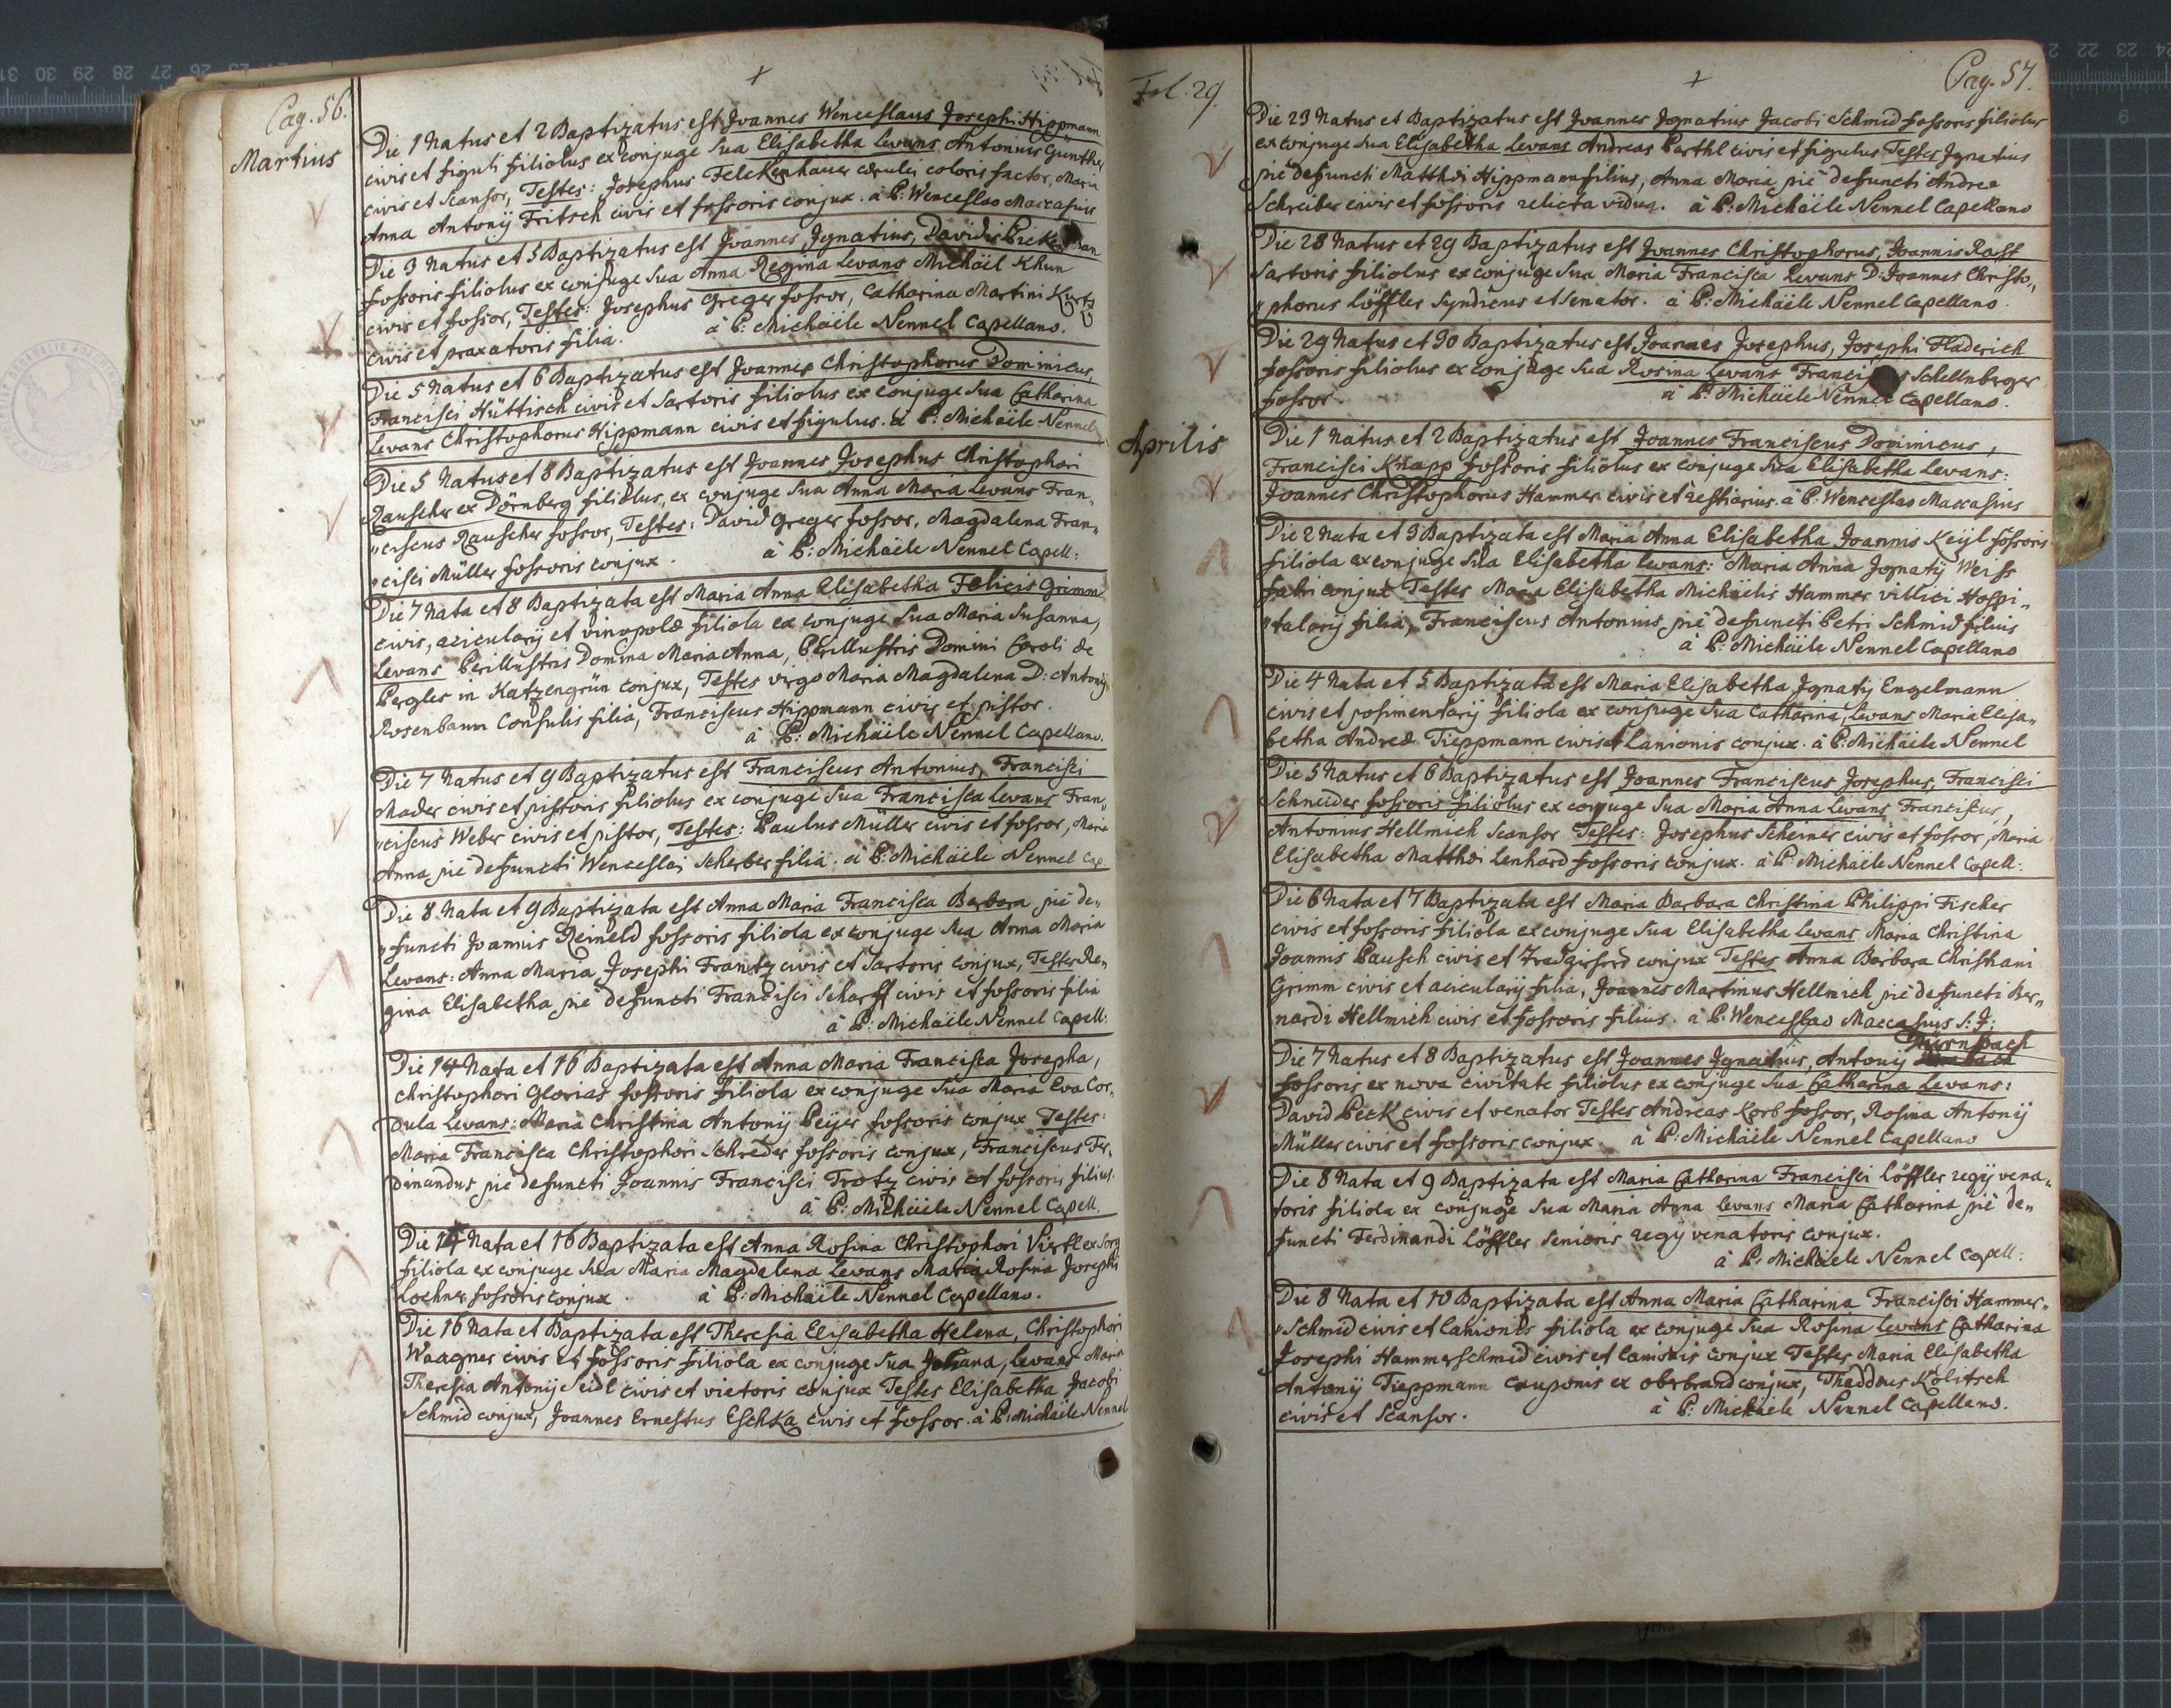 Pag. 56.
Martius
Die 1 Natus et 2 Baptizatus est Joannes Wenceslaus Josephi Hippmann
civis et figuli filiolus ex conjuge sua Elisabetha Levans Antonius Günther
civis et scansor, Testes: Josephus Felckenhauer cærulei coloris factor, Maria
Anna Antonij Fritsch civis et fossoris conjux. à P: Wenceslao Maccasius
Die 3 Natus et 5 Baptizatus est Joannes Ignatius, Davidis
fossoris filiolus ex conjuge sua Anna Regina Levans Michäel Khun
civis et fossor, Testes: Josephus Greger fossor, Catharina Martini Kurtz
civis et praxatoris filia. à P: Michäele Nennel Capellano.
Die 5 Natus et 6 Baptizatus est Joannes Christophorus Dominicus,
Francisci Hüttisch civis et Sartoris filiolus ex conjuge sua Catharina
Levans Christophorus Hippmann civis et figulus. à P: Michäele Nennel
Die 5 Natus et 8 Baptizatus est Joannes Josephus Christophori
Rauscher ex Dörnberg filiolus, ex conjuge sua Anna Maria Levans Fran„
„ciscus Rauscher fossor, Testes: David Greger fossor, Magdalena Fran„
„cisci Müller fossoris conjux. à P: Michäele Nennel Capell:
Die 7 Nata et 8 Baptizata est Maria Anna Elisabetha Felicis Grimm
civis, acicularij et vinopolæ filiola ex conjuge sua Maria Susanna,
Levans Perillustris Domina Maria Anna, Perillustris Domini Caroli de
Pergler in Katzengrün conjux, Testes virgo Maria Magdalena D: Antonij
Rosenbaum Consulis filia, Franciscus Hippmann civis et pistor.
à P: Michäele Nennel Capellano.
Die 7 Natus et 9 Baptizatus est Franciscus Antonius, Francisci
Mader civis et pistoris filiolus ex conjuge sua Francisca Levans Fran„
„ciscus Weber civis et pistor, Testes: Paulus Müller civis et fossor, Maria
Anna piè defuncti Wenceslai Scherber filia. à P: Michäele Nennel Cap.
Die 8 Nata et 9 Baptizata est Anna Maria Francisca Barbara piè de„
„functi Joannis Reineld fossoris filiola ex conjuge sua Anna Maria
Levans: Anna Maria Josephi Frantz civis et Sartoris conjux, Testes Re„
gina Elisabetha piè defuncti Francisci Scharff civis et fossoris filia
à P: Michäele Nennel Capell:
Die 14 Nata et 16 Baptizata est Anna Maria Francisca Josepha,
Christophori Glorias fossoris filiola ex conjuge sua Maria Eva Cor„
dula Levans: Maria Christina Antonij Peijer fossoris conjux Testes:
Maria Francisca Christophori Schreder fossoris conjux, Franciscus Fer„
dinandus piè defuncti Joannis Francisci Trotz civis et fossoris filius.
à P: Michäele Nennel Capell.
Die 14 Nata et 16 Baptizata est Anna Rosina Christophori Viertl ex Sorg
filiola ex conjuge sua Maria Magdalena Levans Maria Rosina Josephi
Lochner fossoris conjux. à P: Michäele Nennel Capellano.
Die 16 Nata et Baptizata est Theresia Elisabetha Helena, Christophori
Waagner civis et fossoris filiola ex conjuge sua Juliana, Levans Maria
Theresia Antonij Seidl civis et vietoris conjux Testes Elisabetha Jacobi
Schmid conjux, Joannes Ernestus Eschka civis et fossor. à P: Michäele Nennel
Fol. 29.
Pag. 57.
Die 23 Natus et Baptizatus est Joannes Ignatius Jacobi Schmid fossoris filiolus
ex conjuge sua Elisabetha Levans Andreas Parthl civis et figulus Testes Ignatius
piè defuncti Matthæi Hippmann filius, Anna Maria piè defuncti Andreæ
Schreiber civis et fossoris relicta vidua. à P: Michäele Nennel Capellano
Die 28 Natus et 29 Baptizatus est Joannes Christophorus, Joannis Rass
Sartoris filiolus ex conjuge sua Maria Francisca Levans D: Joannes Christo„
„phorus Löffler Syndicus et Senator. à P: Michäele Nennel Capellano.
Die 29 Natus et 30 Baptizatus est Joannes Josephus, Josephi Haderich
fossoris filiolus ex conjuge sua Rosina Levans Schellnberger
fossor. à P: Michäele Nennel Capellano.
Aprilis
Die 1 Natus et 2 Baptizatus est Joannes Franciscus Dominicus,
Francisci Knapp fossoris filiolus ex conjuge sua Elisabetha Levans:
Joannes Christophorus Hammer civis et restiarius. à P: Wenceslao Maccasius
Die 2 Nata et 3 Baptizata est Maria Anna Elisabetha Joannis Keijl fossoris
filiola ex conjuge sua Elisabetha Levans: Maria Anna Ignatij Weiss
fabri conjux Testes Maria Elisabetha Michäelis Hammer villici Hospi„
„talarij filia, Franciscus Antonius piè defuncti Petri Schmid filius
à P: Michäele Nennel Capellano
Die 4 Nata et 5 Baptizata est Maria Elisabetha Ignatij Engelmann
civis et posimentarij filiola ex conjuge sua Catharina, Levans Maria Elisa„
betha Andreæ Tieppmann civis et Lanionis conjux. à P: Michäele Nennel
Die 5 Natus et 6 Baptizatus est Joannes Franciscus Josephus, Francisci
Schneider fossoris filiolus ex conjuge sua Maria Anna Levans Franciscus,
Antonius Hellmich scansor Testes: Josephus Scheiner civis et fossor, Maria
Elisabetha Matthæi Lenhard fossoris conjux. à P: Michäele Nennel Capell:
Die 6 Nata et 7 Baptizata est Maria Barbara Christina Philippi Fischer
civis et fossoris filiola ex conjuge sua Elisabetha Levans Maria Christina
Joannis Pausch civis et conjux Testes Anna Barbara Christiani
Grimm civis et acicularij filia, Joannes Martinus Hellmich piè defuncti Ber„
nardi Hellmich civis et fossoris filius. à P: Wenceslao Maccasius S: J:
Die 7 Natus et 8 Baptizatus est Joannes Ignatius, Antonij
fossoris ex nova civitate filiolus ex conjuge sua Catharina Levans:
David Peck civis et venator Testes Andreas Korb fossor, Rosina Antonij
Müller civis et fossoris conjux. à P: Michäele Nennel Capellano
Die 8 Nata et 9 Baptizata est Maria Catharina Francisci Löffler regij vena„
toris filiola ex conjuge sua Maria Anna Levans Maria Catharina piè de„
functi Ferdinandi Löffler senioris regij venatoris conjux.
à P: Michäele Nennel Capell:
Die 8 Nata et 10 Baptizata est Anna Maria Catharina Francisci Hammer„
„Schmid civis et Lanionis filiola ex conjuge sua Rosina Levans Catharina
Josephi Hammerschmid civis et Lanionis conjux Testes Maria Elisabetha
Antonij Tieppmann cauponis ex oberbrand conjux, Thaddæus Kolitsch
civis et scansor. à P: Michäele Nennel Capellano.